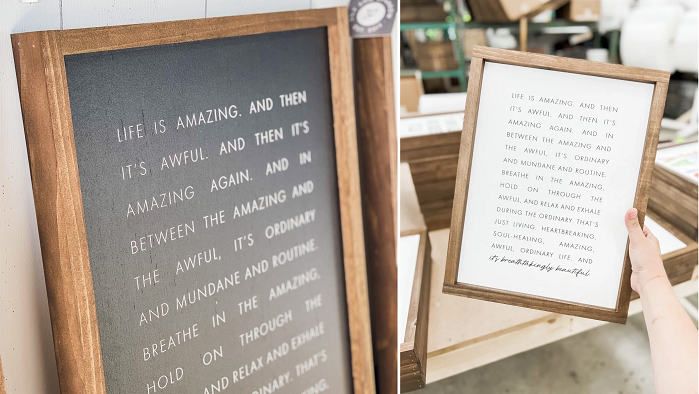 LIFE IS AMAZING. AND THEN
IT'S AWFUL. AND THEN IT'S
AMAZING AGAIN. AND IN
BETWEEN THE AMAZING AND
THE AWFUL, IT'S ORDINARY
AND MUNDANE AND ROUTINE.
BREATHE IN THE AMAZING,
HOLD ON THROUGH THE
AND RELAX AND EXHALE
ORDINARY. THAT'S
LIFE IS AMAZING. AND THEN
IT'S AWFUL. AND THEN IT'S
AMAZING AGAIN. AND IN
BETWEEN THE AMAZING AND
THE AWFUL, IT'S ORDINARY
AND MUNDANE AND ROUTINE.
BREATHE IN THE AMAZING,
HOLD ON THROUGH THE
AWFUL, AND RELAX AND EXHALE
DURING THE ORDINARY. THAT'S
JUST LIVING. HEARTBREAKING,
SOUL-HEALING, AMAZING,
AWFUL, ORDINARY LIFE. AND
it's breathtakingly beautiful.